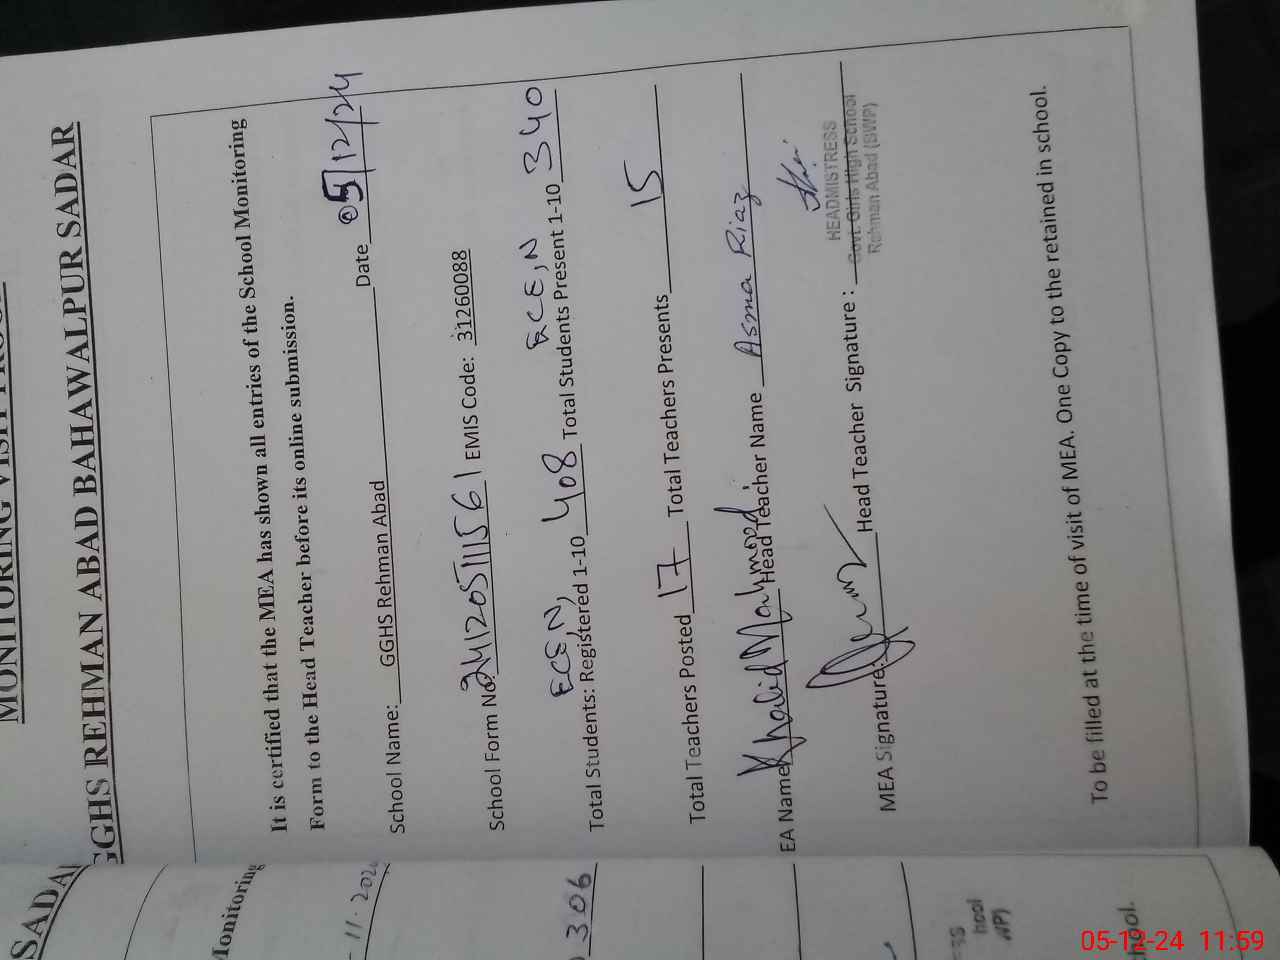 MONITORING VISIT PROOF
GGHS REHMAN ABAD BAHAWALPUR SADAR
It is certified that the MEA has shown all entries of the School Monitoring
Form to the Head Teacher before its online submission.
School Name: GGHS Rehman Abad Date 05/12/24
School Form No. 241205111561 EMIS Code: 31260088
ECE, N, ECE, N
Total Students: Registered 1-10 408 Total Students Present 1-10 340
Total Teachers Posted 17 Total Teachers Presents 15
EA Name Khalid Mahmood Head Teacher Name Asma Riaz
MEA Signature: Head Teacher Signature:
HEADMISTRESS
Govt. Girls High School
Rehman Abad (BWP)
To be filled at the time of visit of MEA. One Copy to the retained in school.
SADAR
Monitoring
306
hool
chool.
05-12-24 11:59